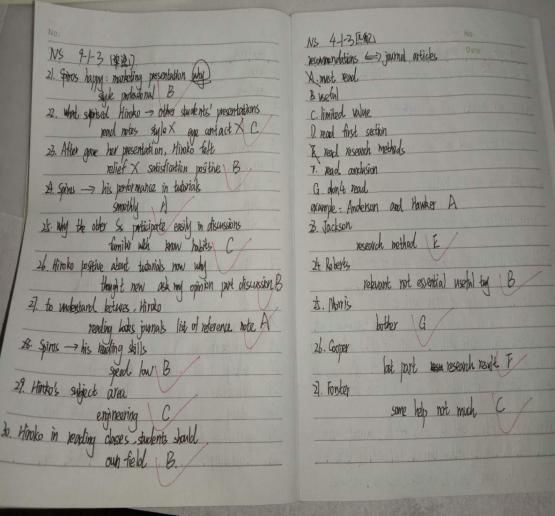 No.
NS 9-1-3
21. Spiros happy: marketing presentation why
style professional B
22. What surprised Hiroko → other students' presentations
read notes style X eye contact X C
23. After gave her presentation, Hiroko felt
relief X satisfaction positive B
24. Spiros → his performance in tutorials
A
25. Why the other Ss participate easily in discussions
familiar with know habits C
26. Hiroko positive about tutorials now why
thought now ask my opinion part discussion B
27. to understand lectures, Hiroko
reading books journals list of reference note A
28. Spiros → his reading skills
speed low B
29. Hiroko's subject area
engineering C
30. Hiroko in reading classes, students should
own field B
No.
Date
NS 4-1-3 匹配
recommendations ⟺ journal articles
A. must read
B. useful
C. limited value
D. read first section
E. read research methods
F. read conclusion
G. don't read
example: Anderson and Hawker A
23. Jackson
research method E
24. Roberts
relevant not essential useful B
25. Morris
bother G
26. Cooper
last part research result F
27. Forster
some help not much C